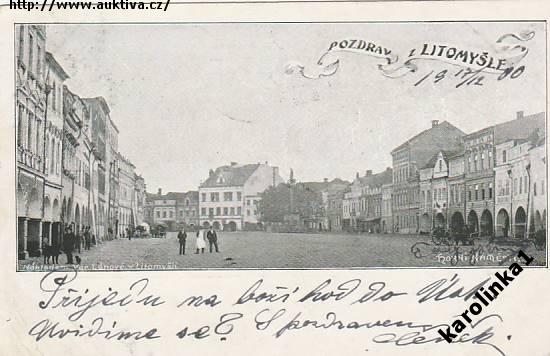 http://www.auktiva.cz/
POZDRAV z LITOMYŠLE
19 17/12 00
Nákladem Vác. Lánové v Litomyšli
HORNÍ NÁMĚSTÍ
Přijedu na boží hod do
Uvidíme se? S pozdravem
karolinka1